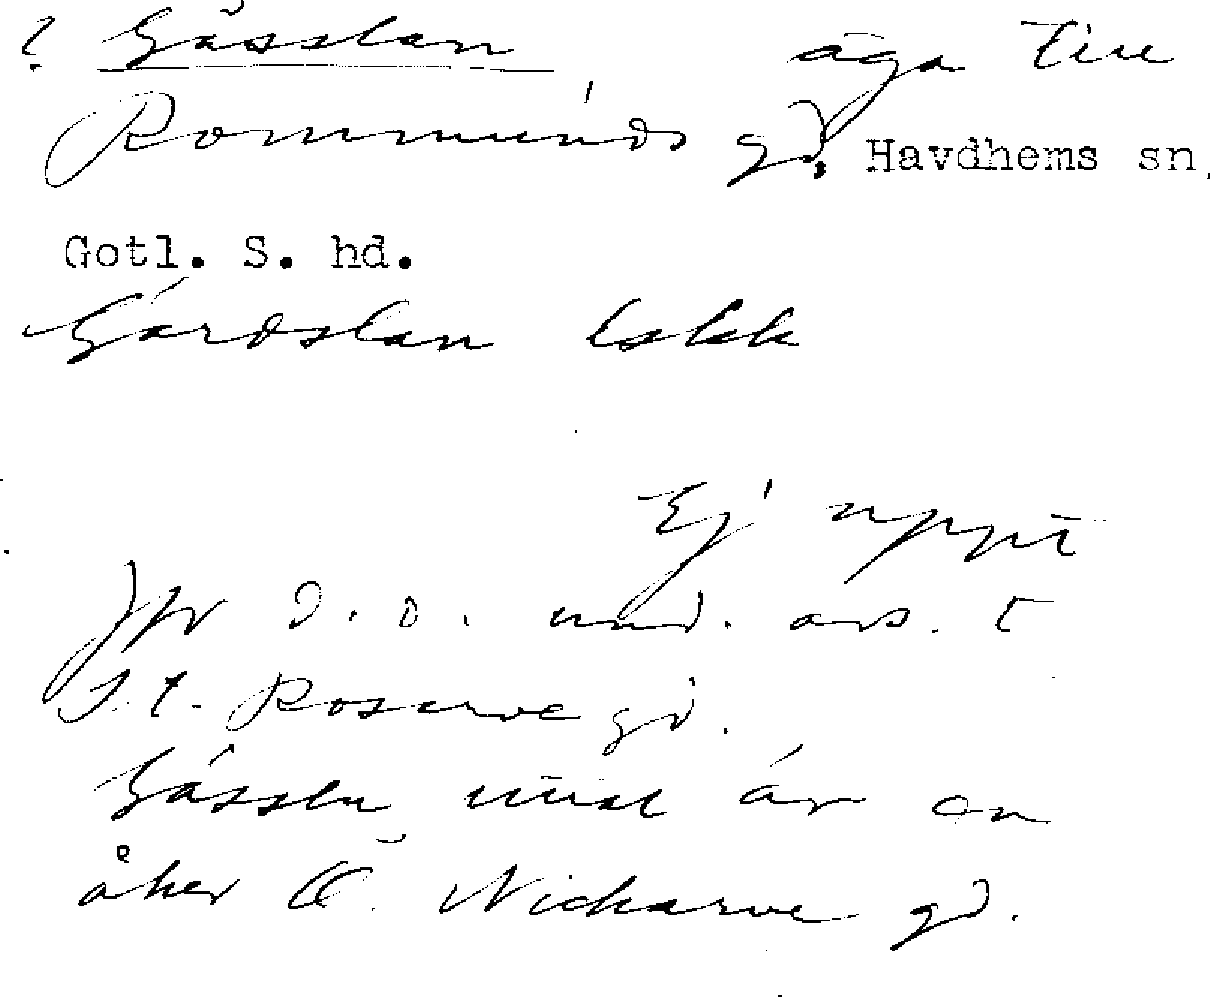 ? Gässlan äga till
Rommunds gd, Havdhems sn,
Gotl. S. hd.
Gårdslan lskk
Ej uppt
Jfr d. o. und. avs. t
St. Rosarve gd.
Gässlu är en
åker t. Nickarve gd.